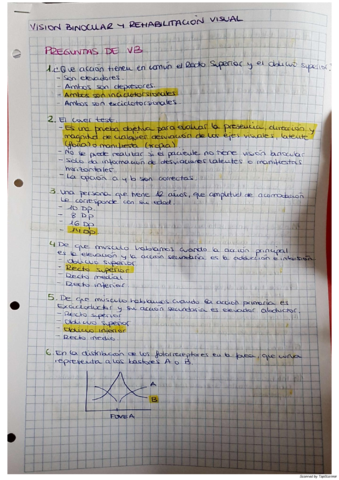 VISION BINOCULAR Y REHABILITACIÓN VISUAL
PREGUNTAS DE VB
1. ¿Que acción tienen en común el Recto Superior y el oblicuo superior?
- Son elevadores
- Ambos son depresores
- Ambos son inciclotorsionales
- Ambos son exciclotorsionales
2. El cover test
- Es una prueba objetiva para evaluar la presencia, dirección y
magnitud de cualquier desviación de los ejes visuales, latente
(foria) o manifiesta (tropia)
- No se puede realizar si el paciente no tiene visión binocular
- Solo da información de desviaciones latentes o manifiestas
horizontales
- La opción a y b son correctas
3. Una persona que tiene 12 años, que amplitud de acomodación
le corresponde con su edad
- 10 DP
- 8 DP
- 16 DP
DP
4. De que musculo hablamos cuando la acción principal
es la elevación y la acción secundaria es la aducción e
- Oblicuo superior
- Recto superior
- Recto medial
- Recto inferior
5. De que musculo hablamos cuando la acción primaria es
Exciclotorsor y su acción secundaria es elevador abductor.
- Recto superior
- Oblicuo superior
- Oblicuo inferior
- Recto medial
6. En la distribución de los fotorreceptores en la fovea, que curva
representa a los bastones A o B.
A
B
FOVEA
Scanned by TapScanner